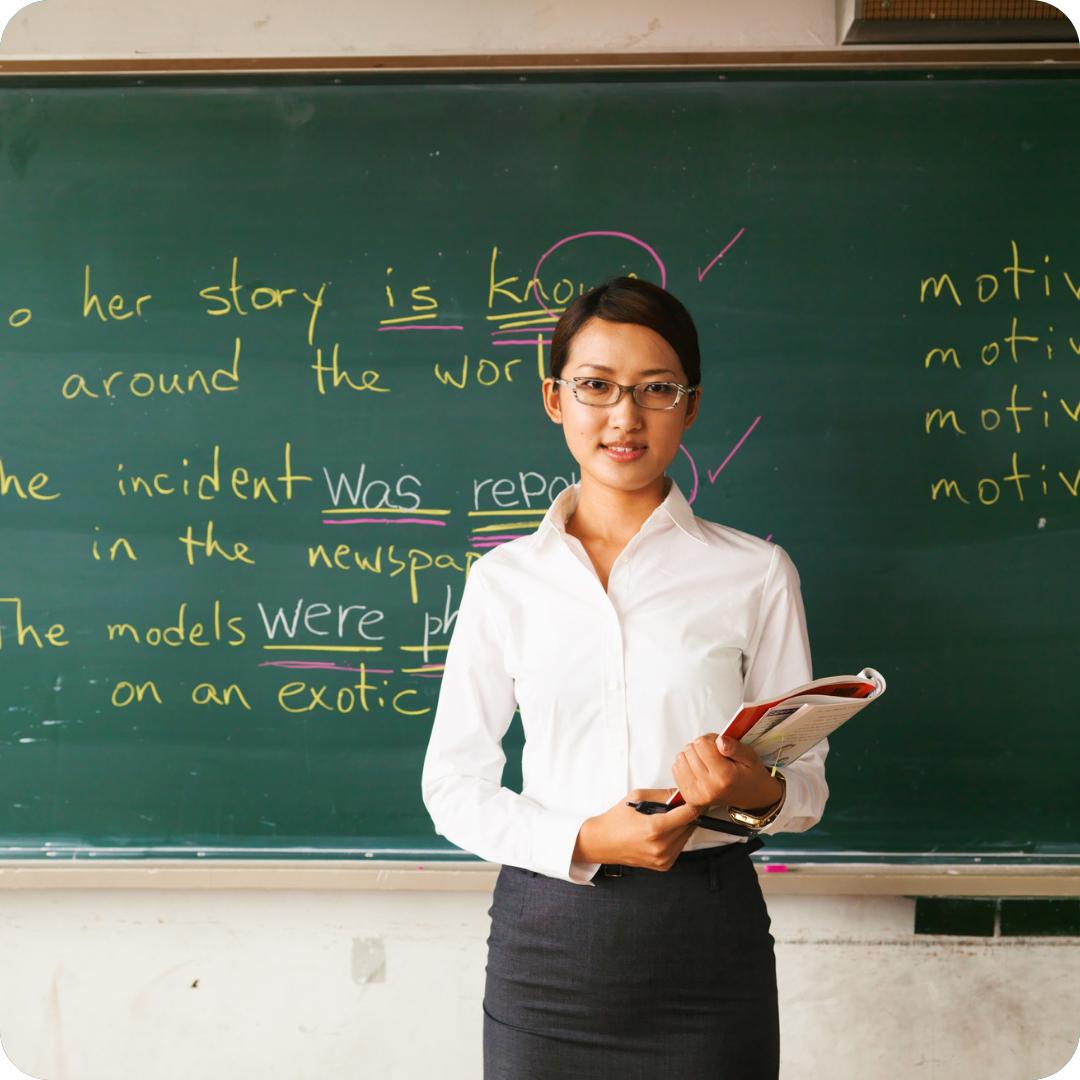 o her story is know
around the worl
he incident was repo
in the newspap
The models were ph
on an exotic
motiv
motiv
motiv
motiv